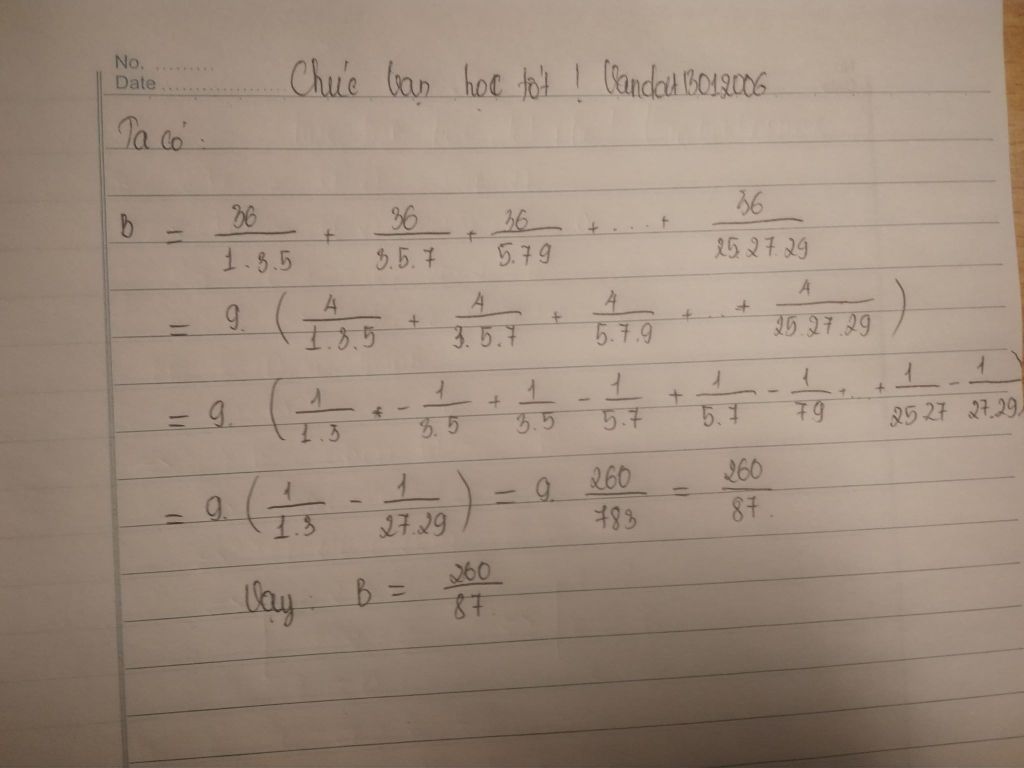 No. .........
Date ....................
Chúc bạn học tốt !
Ta có :
B = 36/1.3.5 + 36/3.5.7 + 36/5.7.9 + .... + 36/25.27.29
= 9. ( 4/1.3.5 + 4/3.5.7 + 4/5.7.9 + ... + 4/25.27.29 )
= 9. ( 1/1.3 - 1/3.5 + 1/3.5 - 1/5.7 + 1/5.7 - 1/79 + ... + 1/25.27 - 1/27.29 )
= 9. ( 1/1.3 - 1/27.29 ) = 9. 260/783 = 260/87.
Vậy : B = 260/87